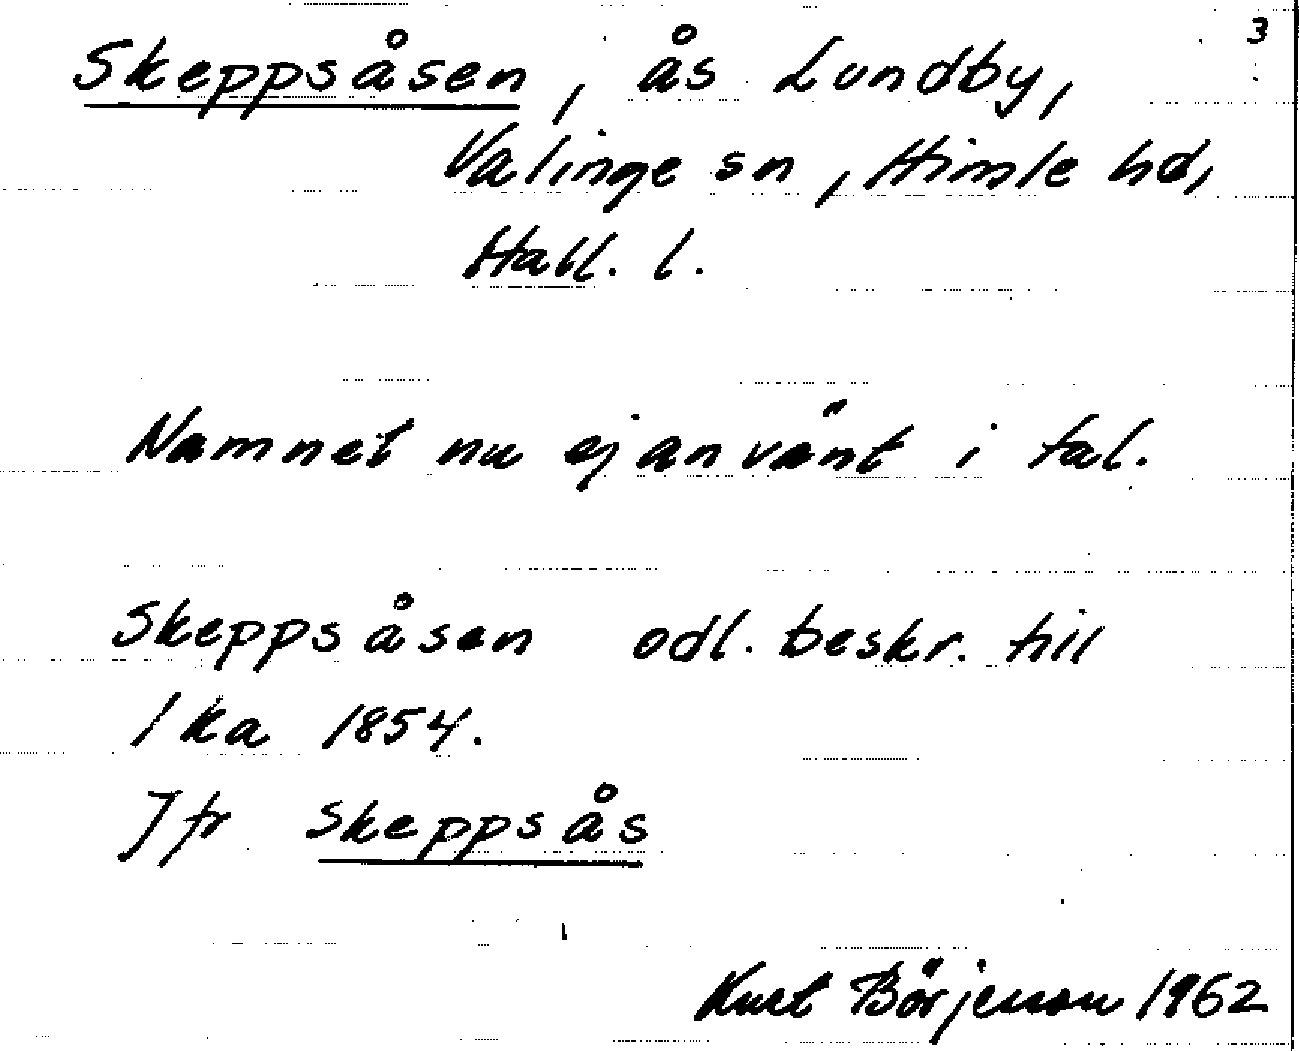 3
Skeppsåsen, ås Lundby,
Valinge sn, Himle hd,
Hall. l.
Namnet nu ej använt i tal.
Skeppsåsen odl. beskr. till
lka 1854.
Jfr Skeppsås
Kurt Börjesson 1962